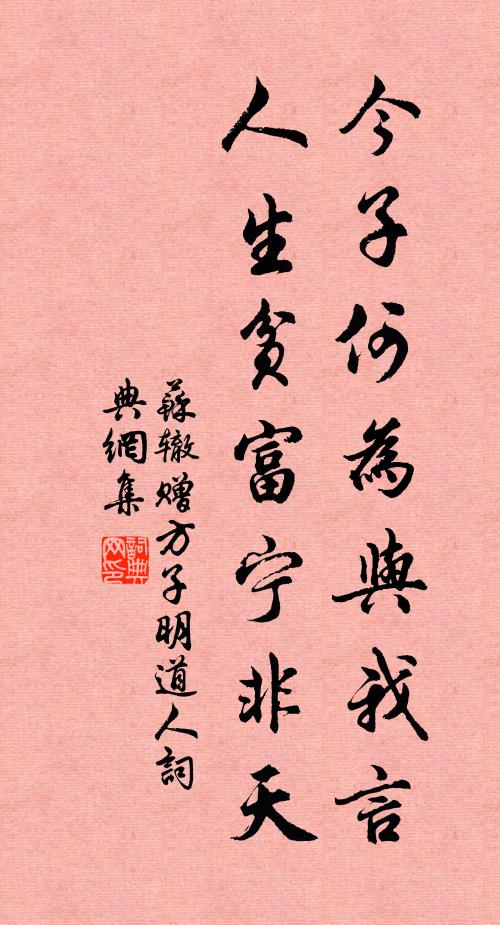 今子何為與我言
人生貧富宁非天
蘇辙赠方子明道人詞
典網集
詞典
网印